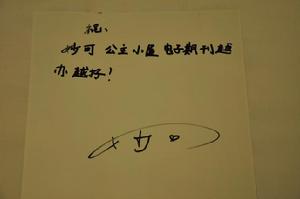 祝、
妙可 公主小屋 电子期刊越
办越好！